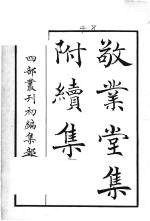 敬業堂集
附續集
四部叢刊初編集部